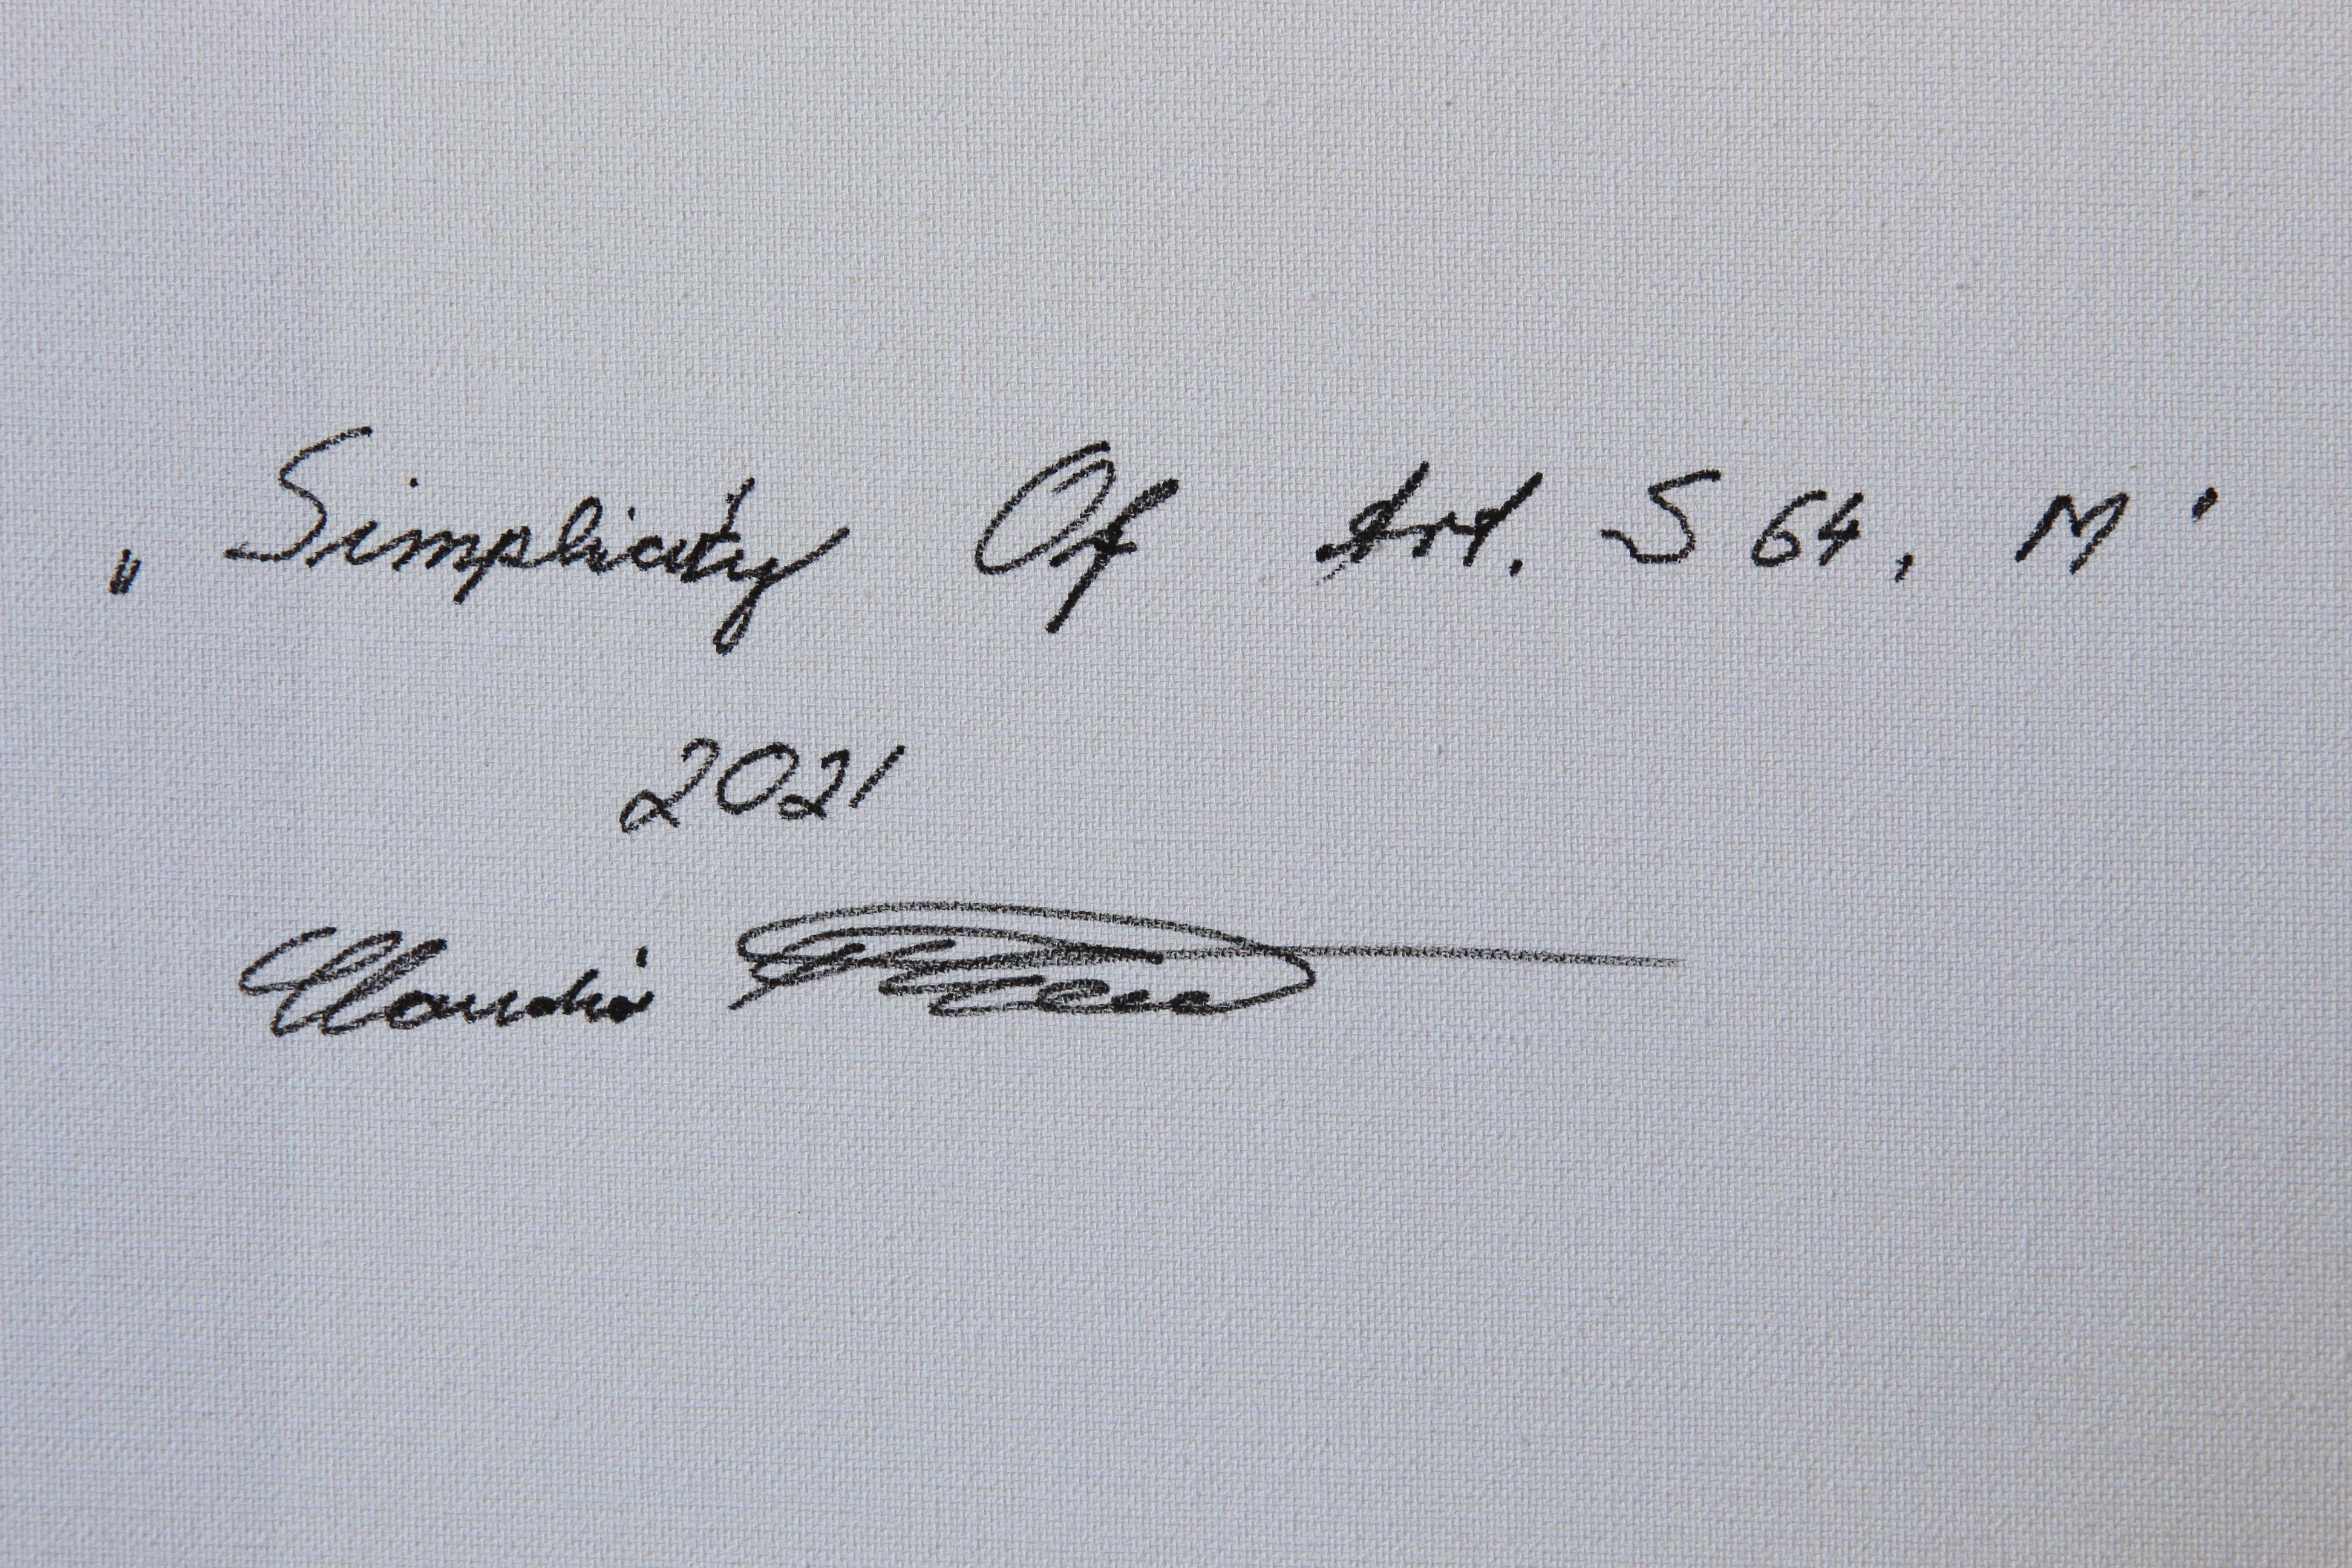 „Simplicity Of Art. S 64, M"
2021
Claudia